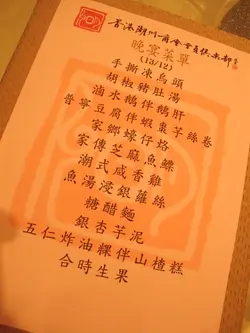 香港潮州商會會員俱樂部
晚宴菜單
(13/12)
手撕凍烏頭
胡椒豬肚湯
滷水鵝伴鵝肝
普寧豆腐伴蝦棗芋絲卷
家鄉蠔仔烙
家傳芝麻魚鰾
潮式咸香雞
魚湯浸銀蘿絲
糖醋麵
銀杏芋泥
五仁炸油粿伴山楂糕
合時生果